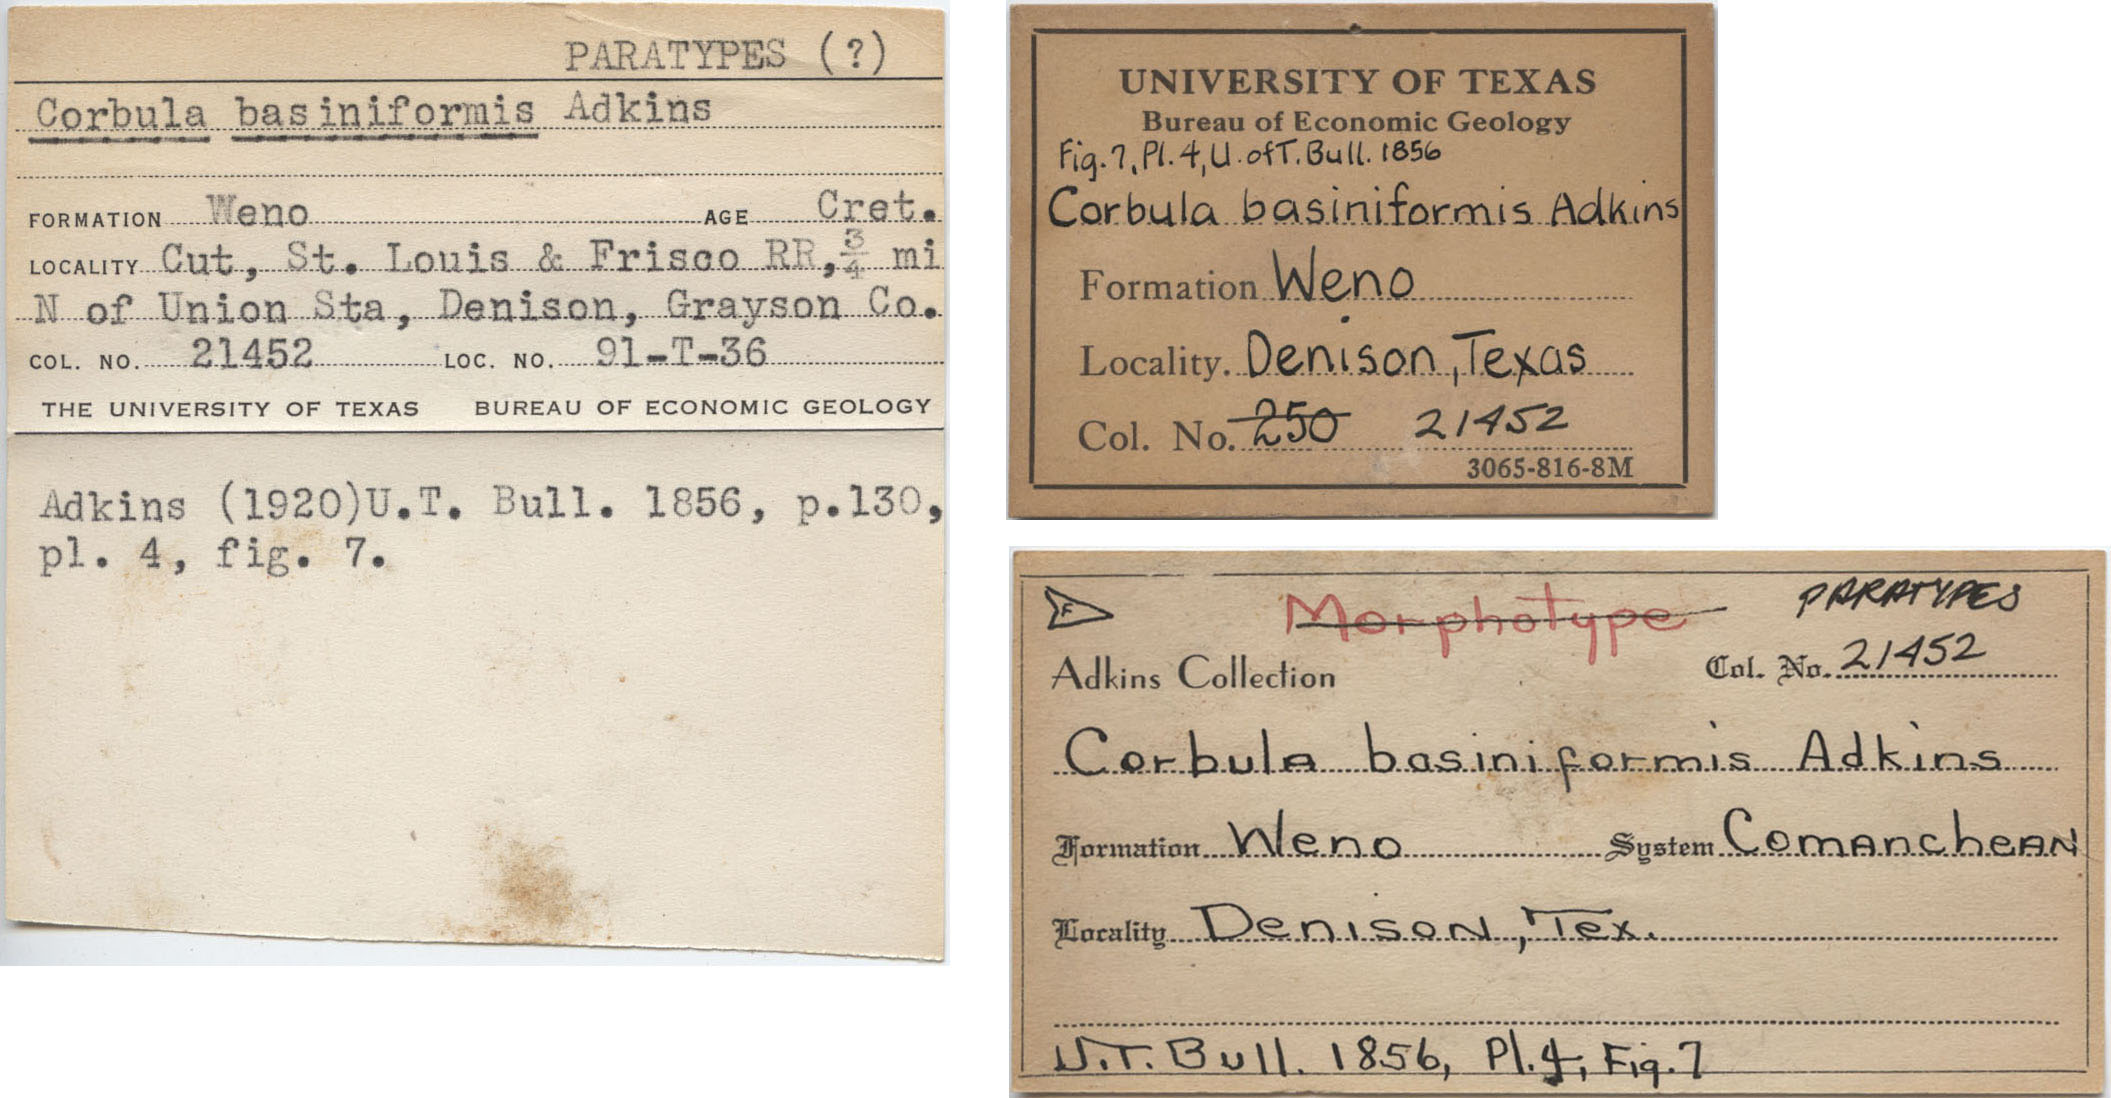 PARATYPES (?)
Corbula basiniformis Adkins
FORMATION Weno AGE Cret.
LOCALITY Cut, St. Louis & Frisco RR, 3/4 mi
N of Union Sta, Denison, Grayson Co.
COL. NO. 21452 LOC. NO. 91-T-36
THE UNIVERSITY OF TEXAS BUREAU OF ECONOMIC GEOLOGY
Adkins (1920)U.T. Bull. 1856, p.130,
pl. 4, fig. 7.
UNIVERSITY OF TEXAS
Bureau of Economic Geology
Fig. 7, Pl. 4, U. of T. Bull. 1856
Corbula basiniformis Adkins
Formation Weno
Locality. Denison, Texas
Col. No. 250 21452
3065-816-8M
F Morphotype PARATYPES
Adkins Collection Col. No. 21452
Corbula basiniformis Adkins
Formation Weno System Comanchean
Locality Denison, Tex.
U.T. Bull. 1856, Pl. 4, Fig. 7